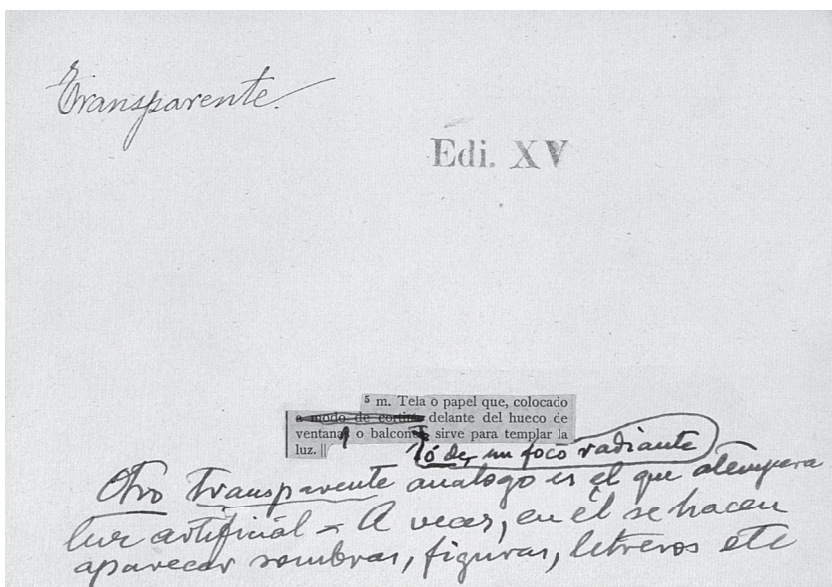 Transparente.
Edi. XV
5 m. Tela o papel que, colocado
a modo de cortina delante del hueco de
ventana o balcon sirve para templar la
luz. ||
ó de, un foco radiante
Otro transparente análogo es el que atempera
luz artificial = A veces, en él se hacen
aparecer sombras, figuras, letreros etc